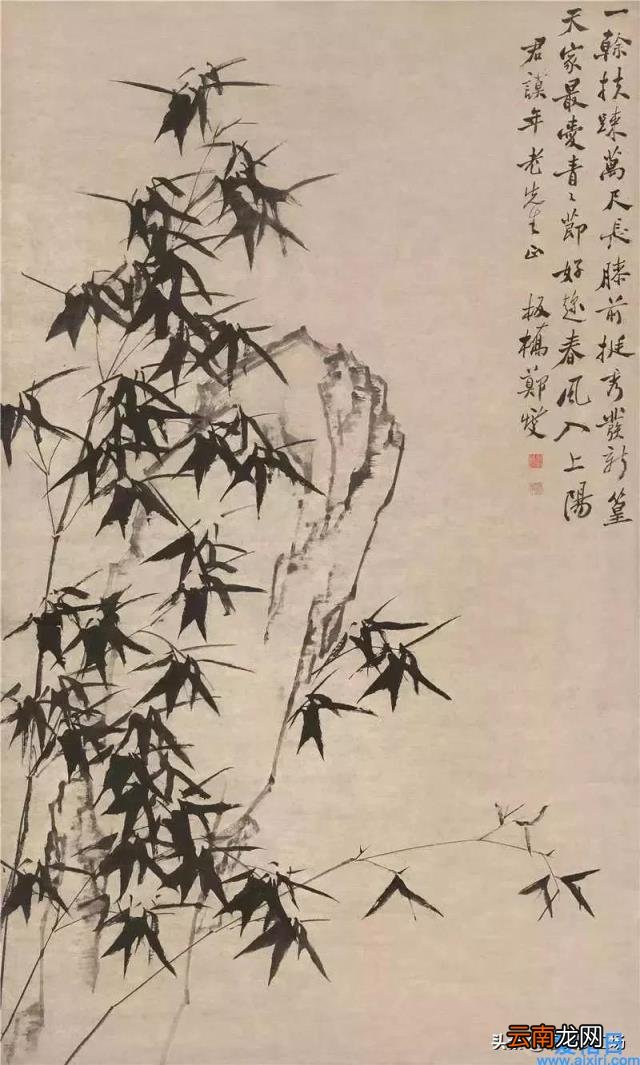 一榦扶踈萬尺長膝前挺秀發新篁
天家最愛青〻節好趁春風入上陽
君謨年老先生正 板橋鄭燮
云南龙网
www.aixiri.com